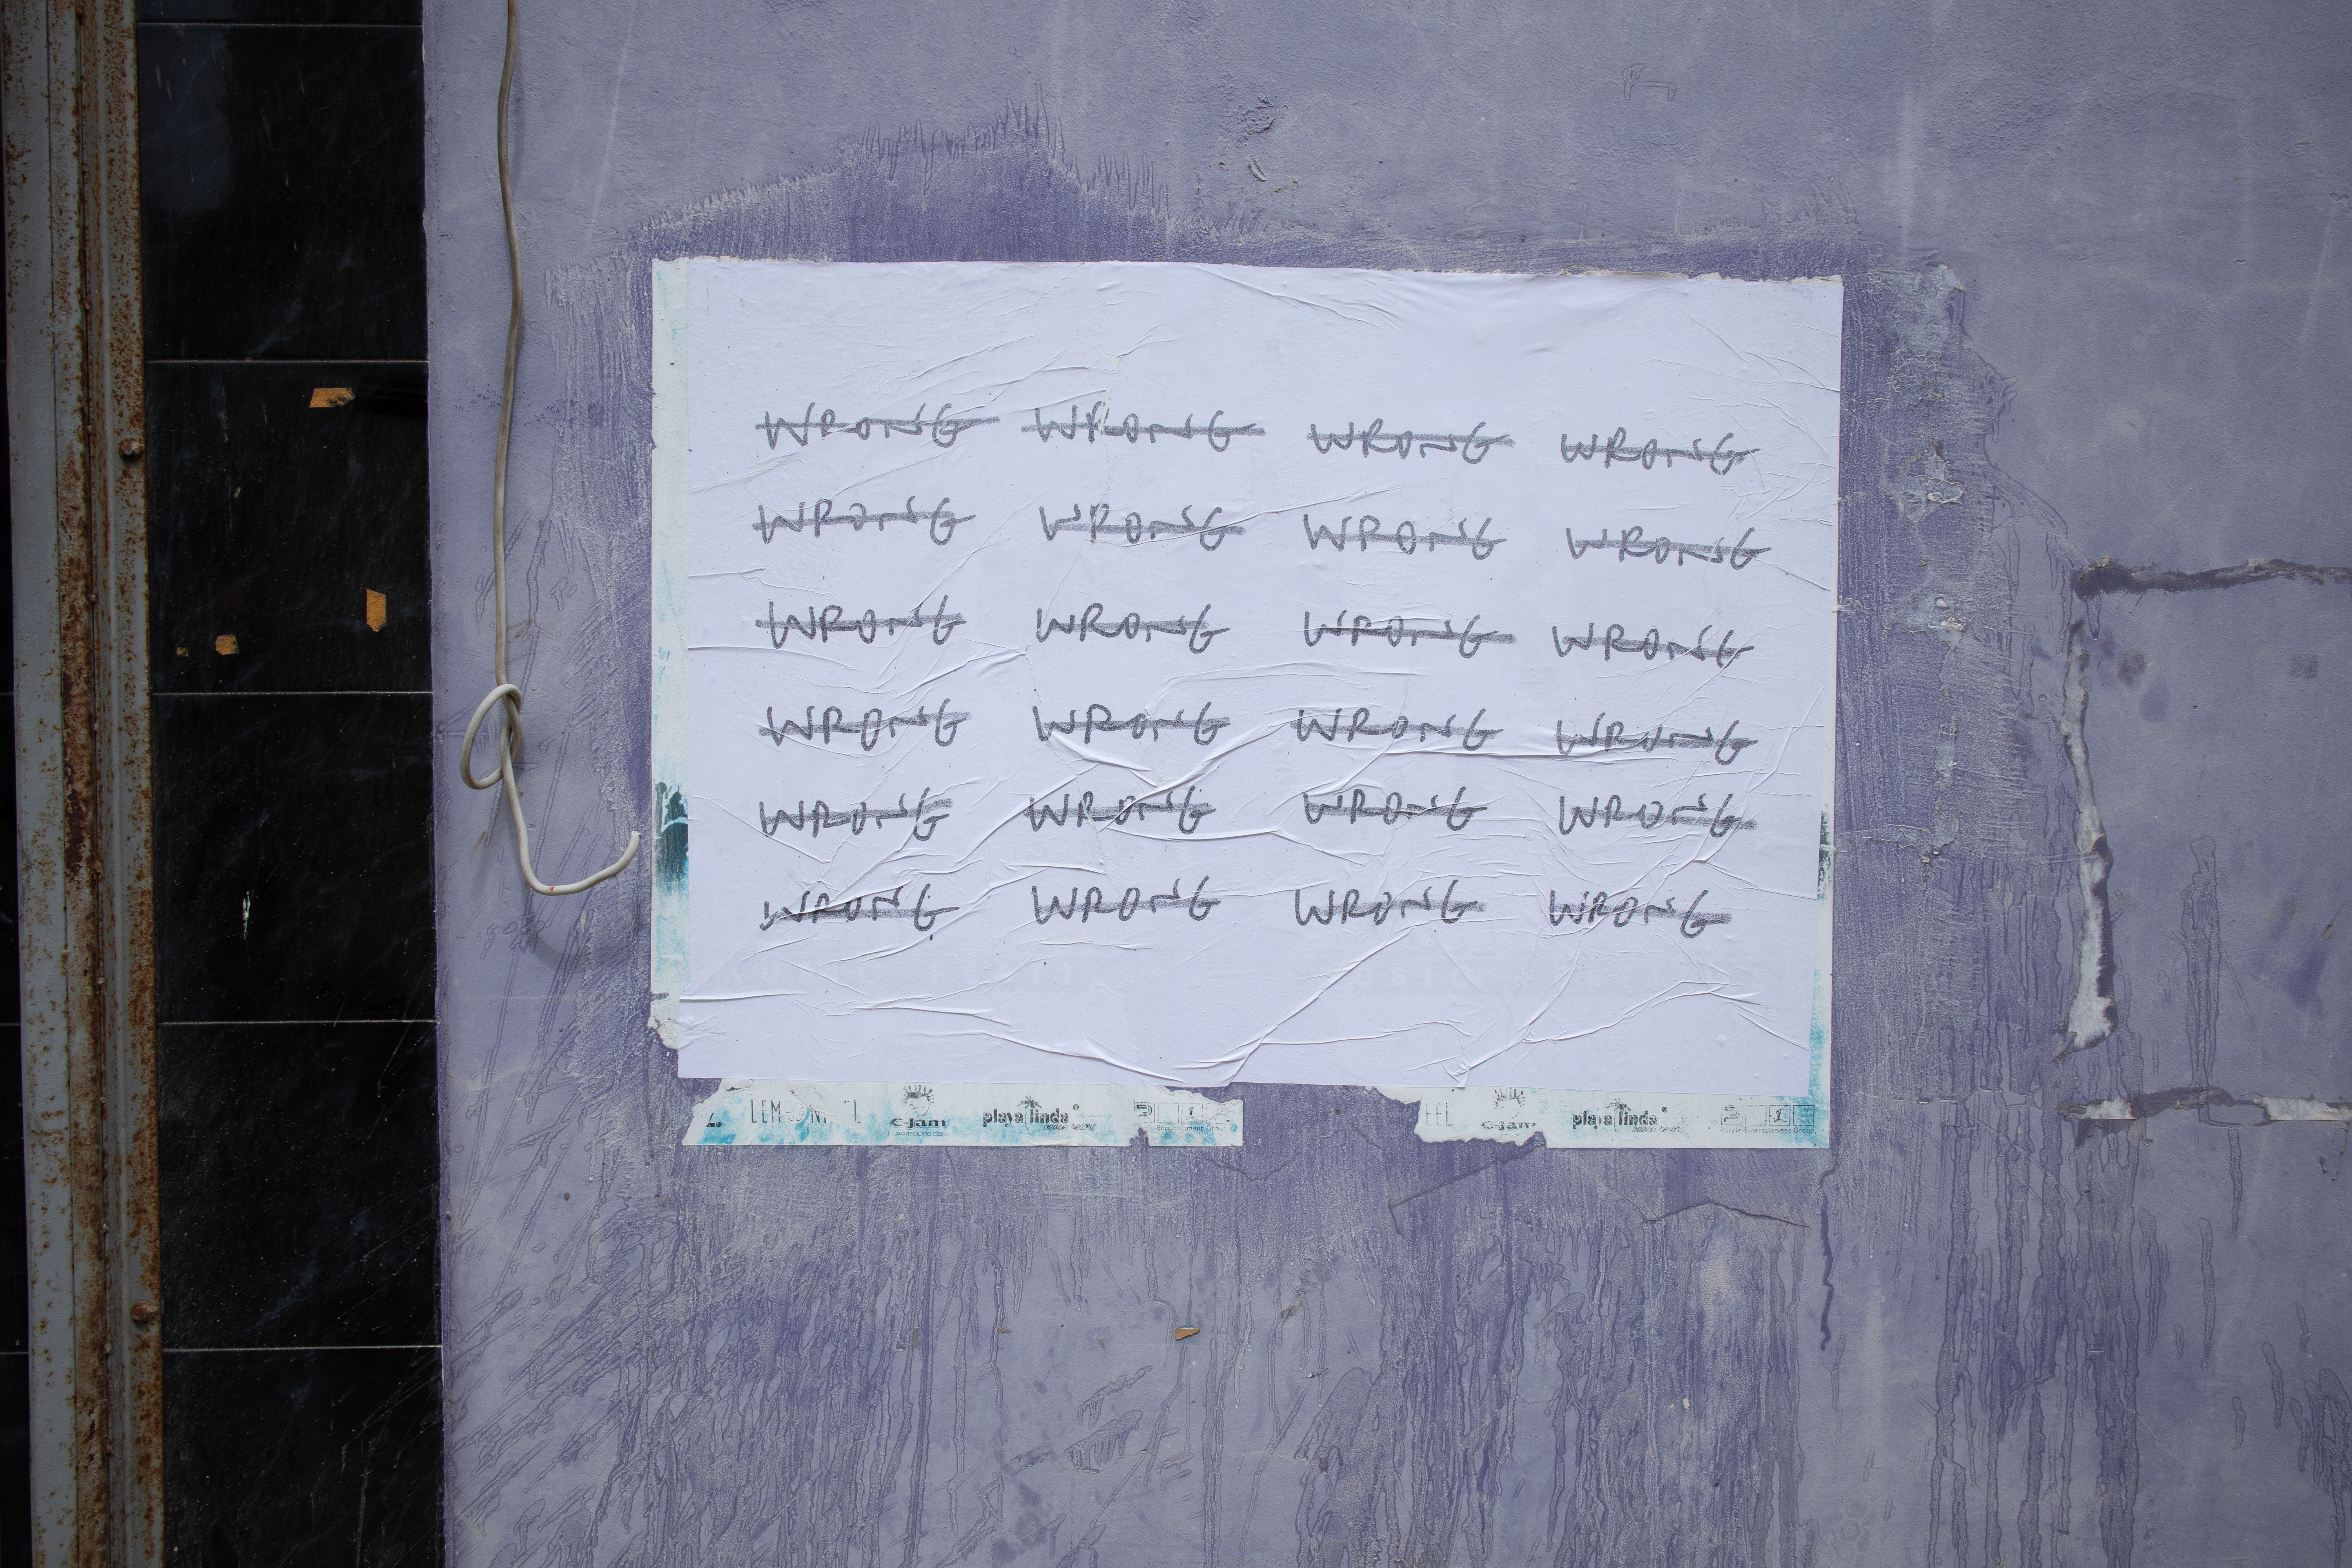 WRONG WRONG WRONG WRONG
WRONG WRONG WRONG WRONG
WRONG WRONG WRONG WRONG
WRONG WRONG WRONG WRONG
WRONG WRONG WRONG WRONG
WRONG WRONG WRONG WRONG
c-jam playa linda c-jam playa linda